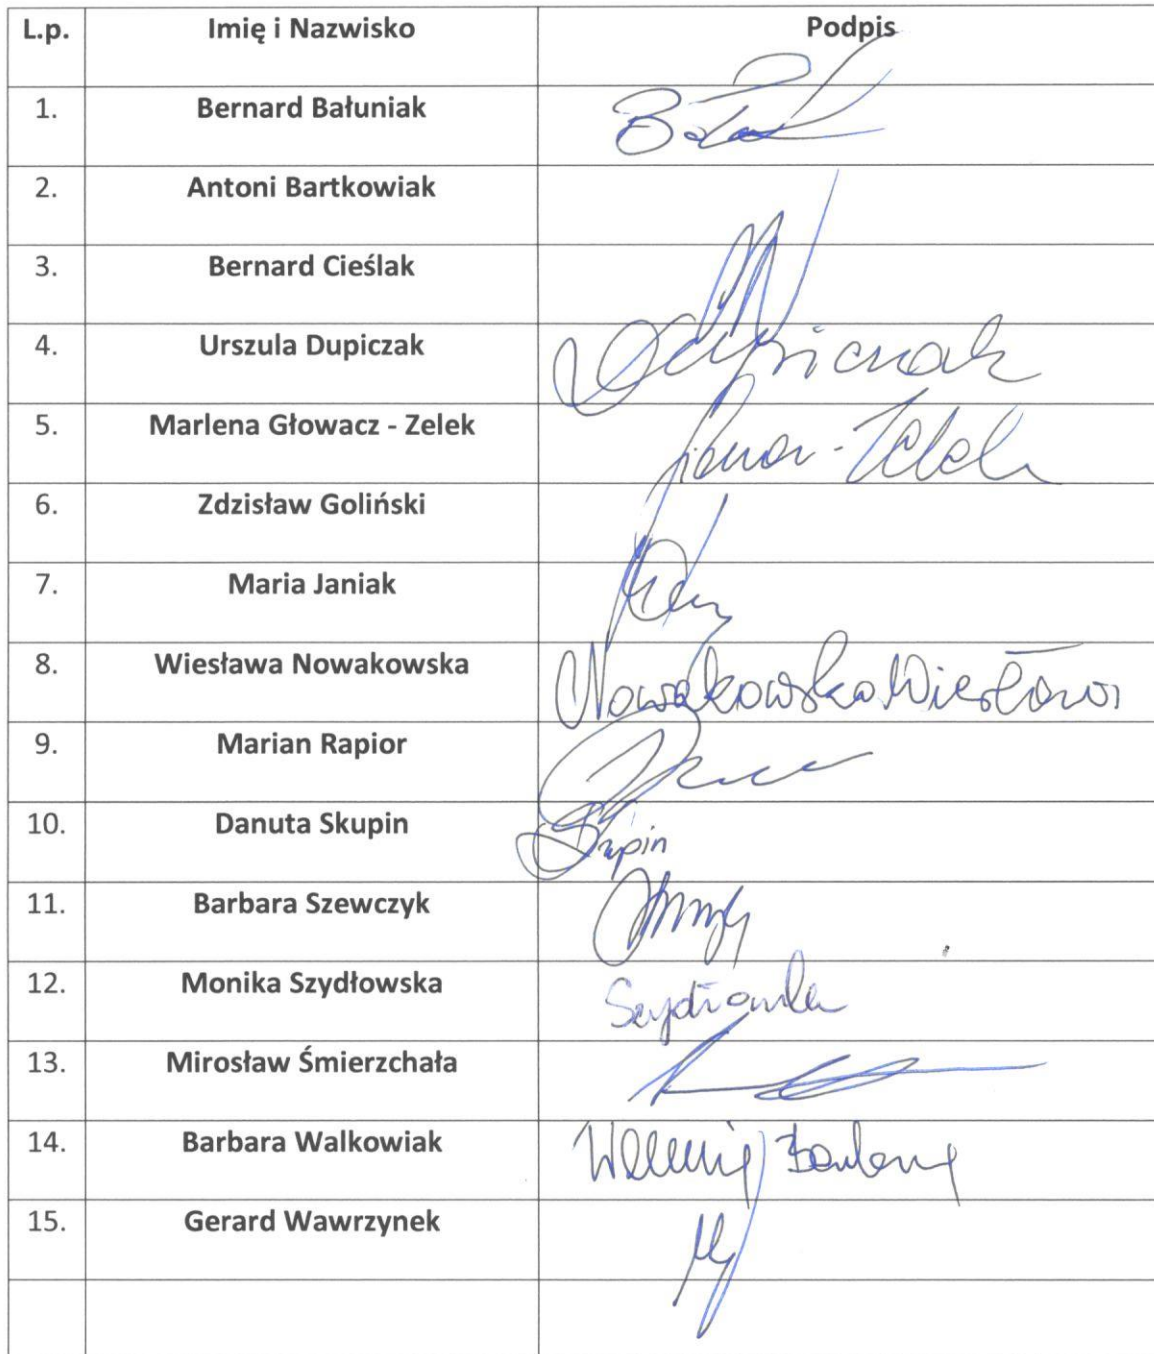 L.p. Imię i Nazwisko Podpis
1. Bernard Bałuniak
2. Antoni Bartkowiak
3. Bernard Cieślak
4. Urszula Dupiczak Dupiczak
5. Marlena Głowacz - Zelek
6. Zdzisław Goliński
7. Maria Janiak
8. Wiesława Nowakowska Nowakowska Wiesława
9. Marian Rapior
10. Danuta Skupin Skupin
11. Barbara Szewczyk
12. Monika Szydłowska Szydłowska
13. Mirosław Śmierzchała
14. Barbara Walkowiak
15. Gerard Wawrzynek